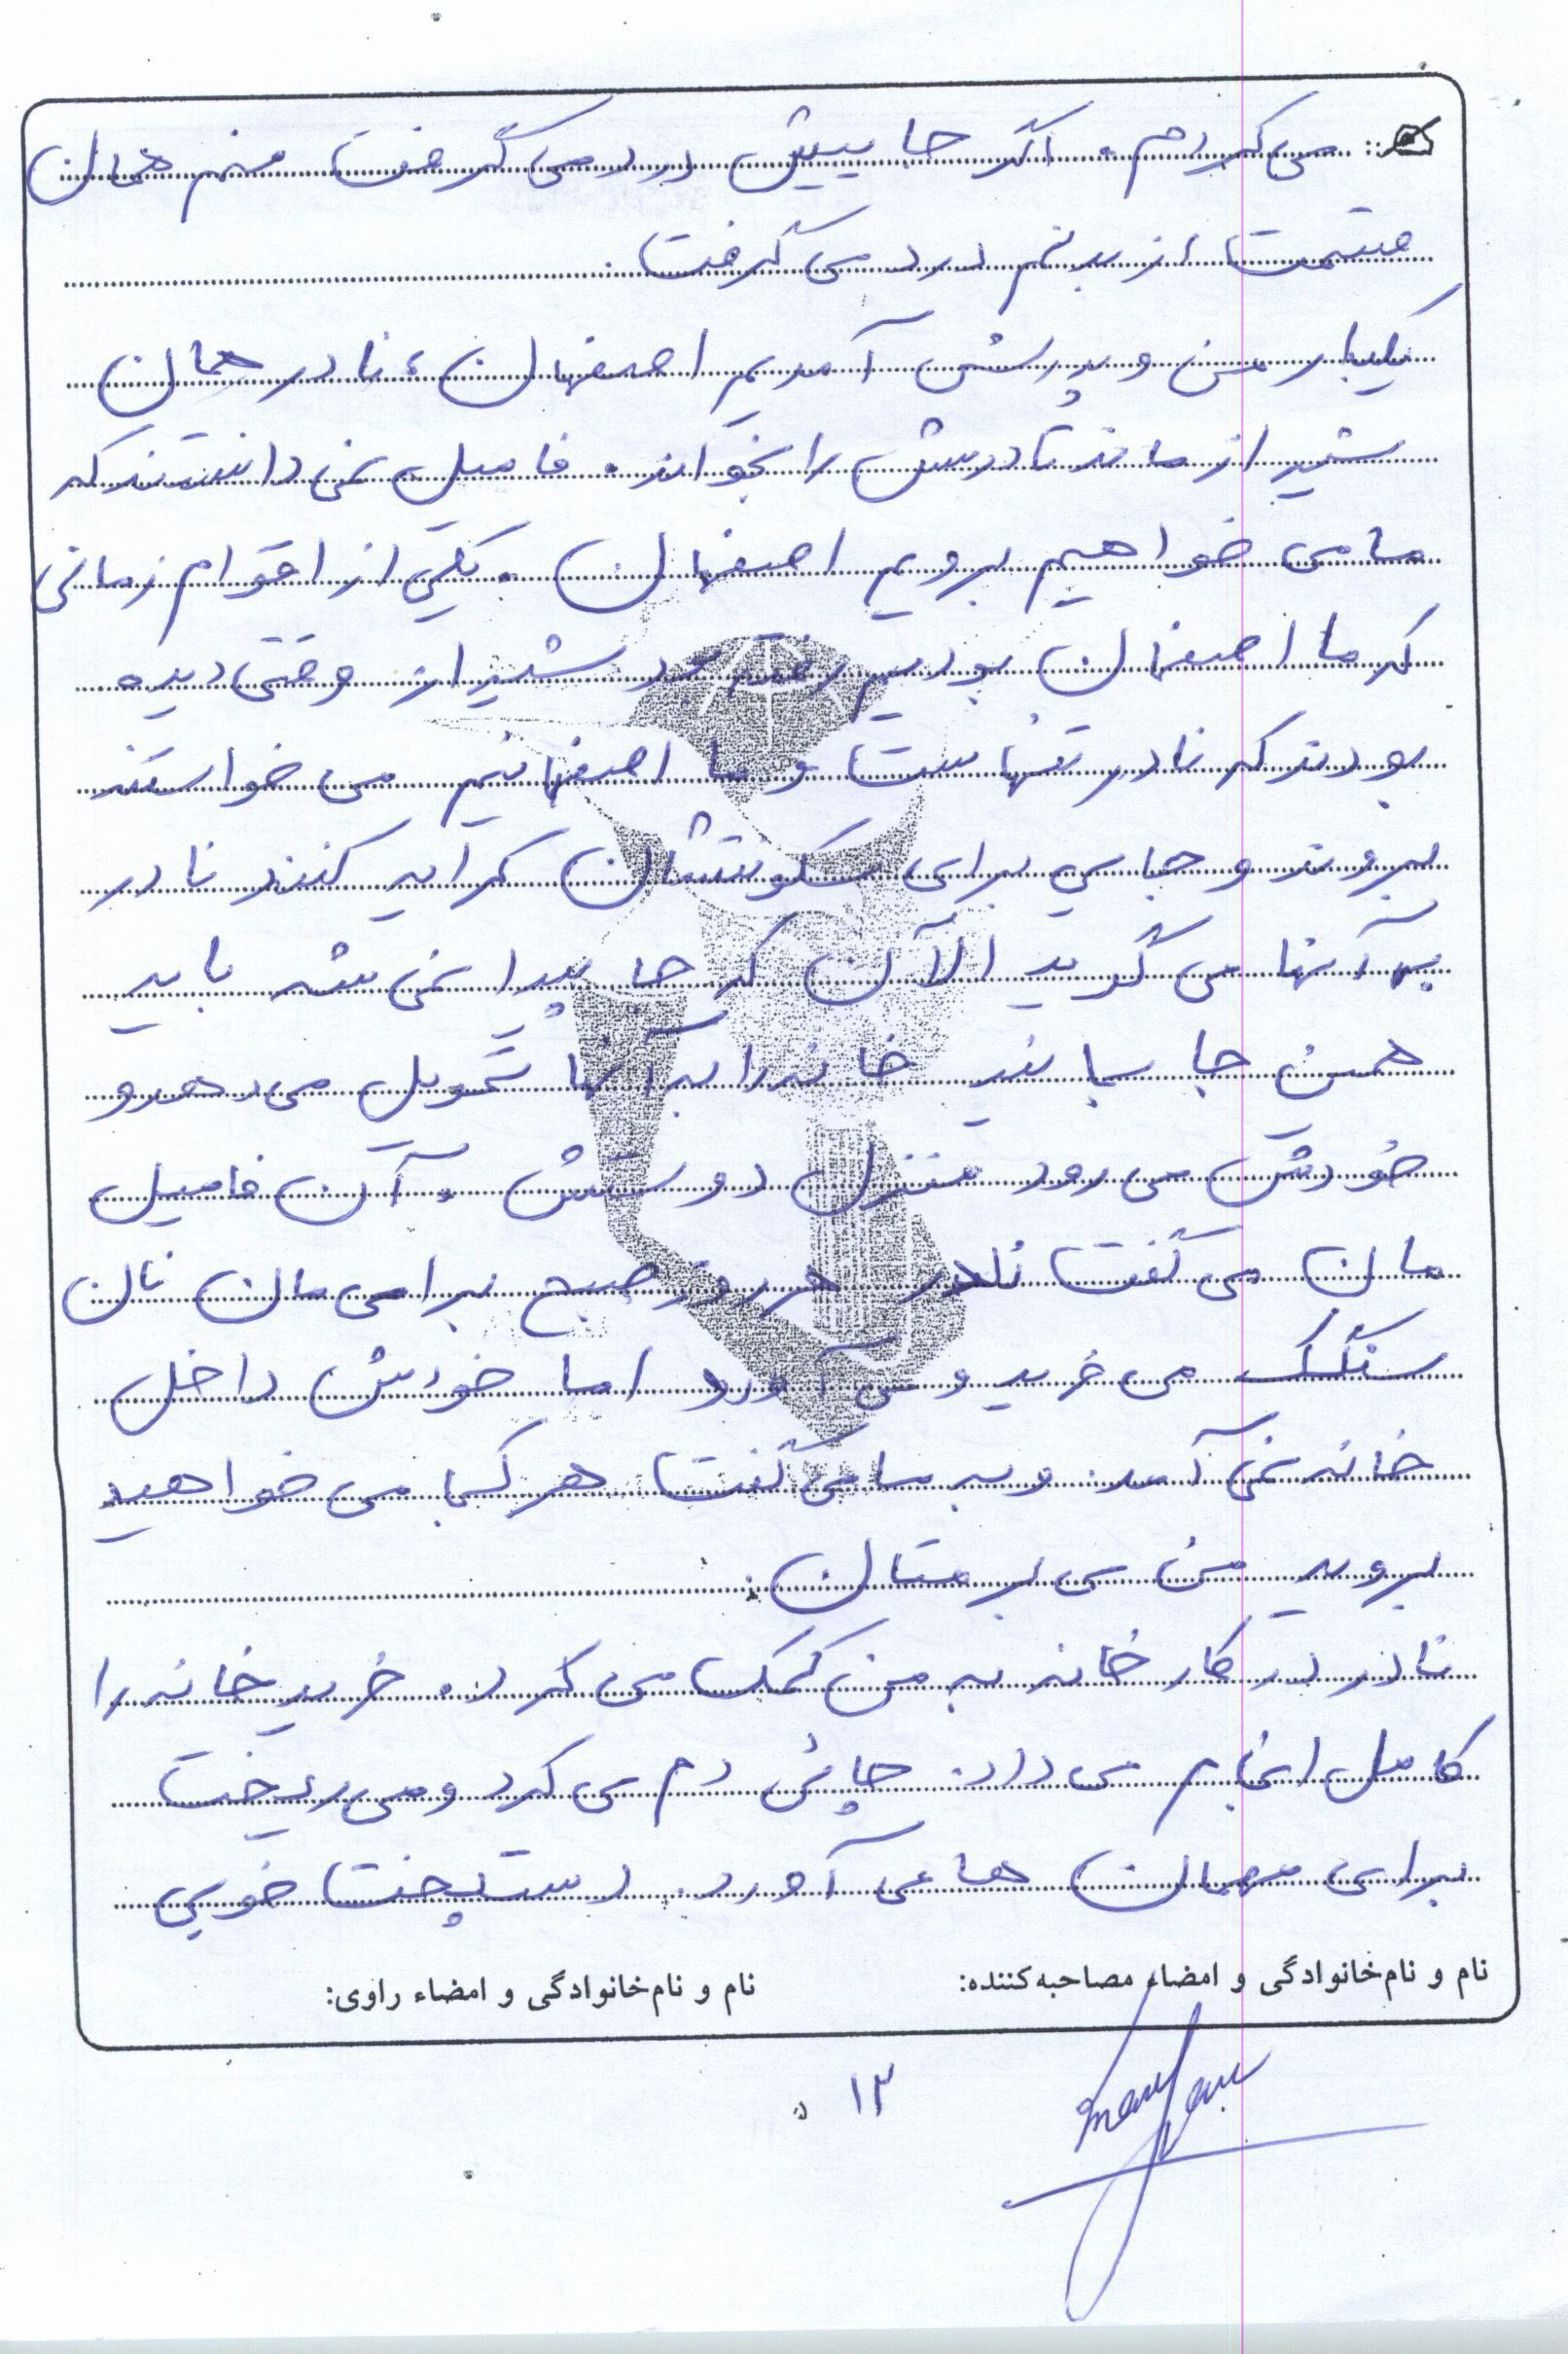 می کردم. اگر جاییش درد می گرفت منم همان
قسمت از بدنم درد می گرفت.
یکبار من و پدرش آمدیم اصفهان، نادر همان
شیراز ماند تا درسش را بخواند. فامیل نمی دانستند که
ما می خواهیم برویم اصفهان. یکی از اقوام زمانی
که ما اصفهان بودیم رفته بود شیراز وقتی دیده
بودند که نادر تنهاست و ما اصفهانیم می خواستند
بروند و جایی برای سکونتشان کرایه کنند نادر
به آنها می گوید الآن که جا پیدا نمی شه باید
همین جا بمانید خانه را به آنها تحویل می دهد و
خودش می رود منزل دوستش. آن فامیل
مان می گفت نادر هر روز صبح برامی مان نان
سنگک می خرید و می آورد اما خودش داخل
خانه نمی آمد. و به ما می گفت هر کجا می خواهید
بروید من می برمتان.
نادر در کار خانه به من کمک می کرد. خرید خانه را
کامل انجام می داد. چائی دم می کرد و می ریخت
برای مهمان ها می آورد. دستپخت خوبی
نام و نام‌خانوادگی و امضاء مصاحبه‌کننده: نام و نام‌خانوادگی و امضاء راوی:
۱۳